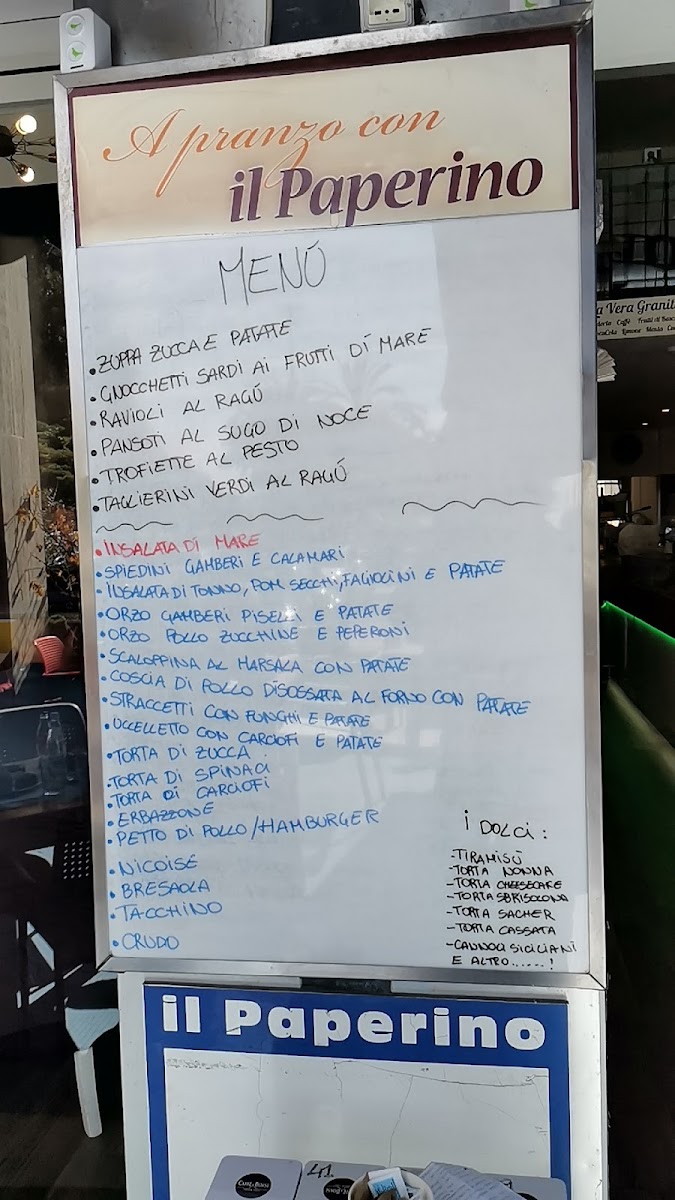 A pranzo con
il Paperino
MENÚ
•ZUPPA ZUCCA E PATATE
•GNOCCHETTI SARDI AI FRUTTI DI MARE
•RAVIOLI AL RAGÚ
•PANSOTI AL SUGO DI NOCE
•TROFIETTE AL PESTO
•TAGLIERINI VERDI AL RAGÚ
•INSALATA DI MARE
•SPIEDINI GAMBERI E CALAMARI
•INSALATA DI TONNO, POM SECCHI, FAGIOLINI E PATATE
•ORZO GAMBERI PISELLI E PATATE
•ORZO POLLO ZUCCHINE E PEPERONI
•SCALOPPINA AL MARSALA CON PATATE
•COSCIA DI POLLO DISOSSATA AL FORNO CON PATATE
•STRACCETTI CON FUNGHI E PATATE
•UCCELLETTO CON CARCIOFI E PATATE
•TORTA DI ZUCCA
•TORTA DI SPINACI
•TORTA DI CARCIOFI
•ERBAZZONE
•PETTO DI POLLO/HAMBURGER
•NICOISE
•BRESAOLA
•TACCHINO
•CRUDO
I DOLCI:
-TIRAMISÚ
-TORTA NONNA
-TORTA CHEESECAKE
-TORTA SBRISOLONA
-TORTA SACHER
-TORTA CASSATA
-CANNOLI SICILIANI
E ALTRO......!
il Paperino
a Vera Granit
Caffè Frutti di Bosc
Limone Menta